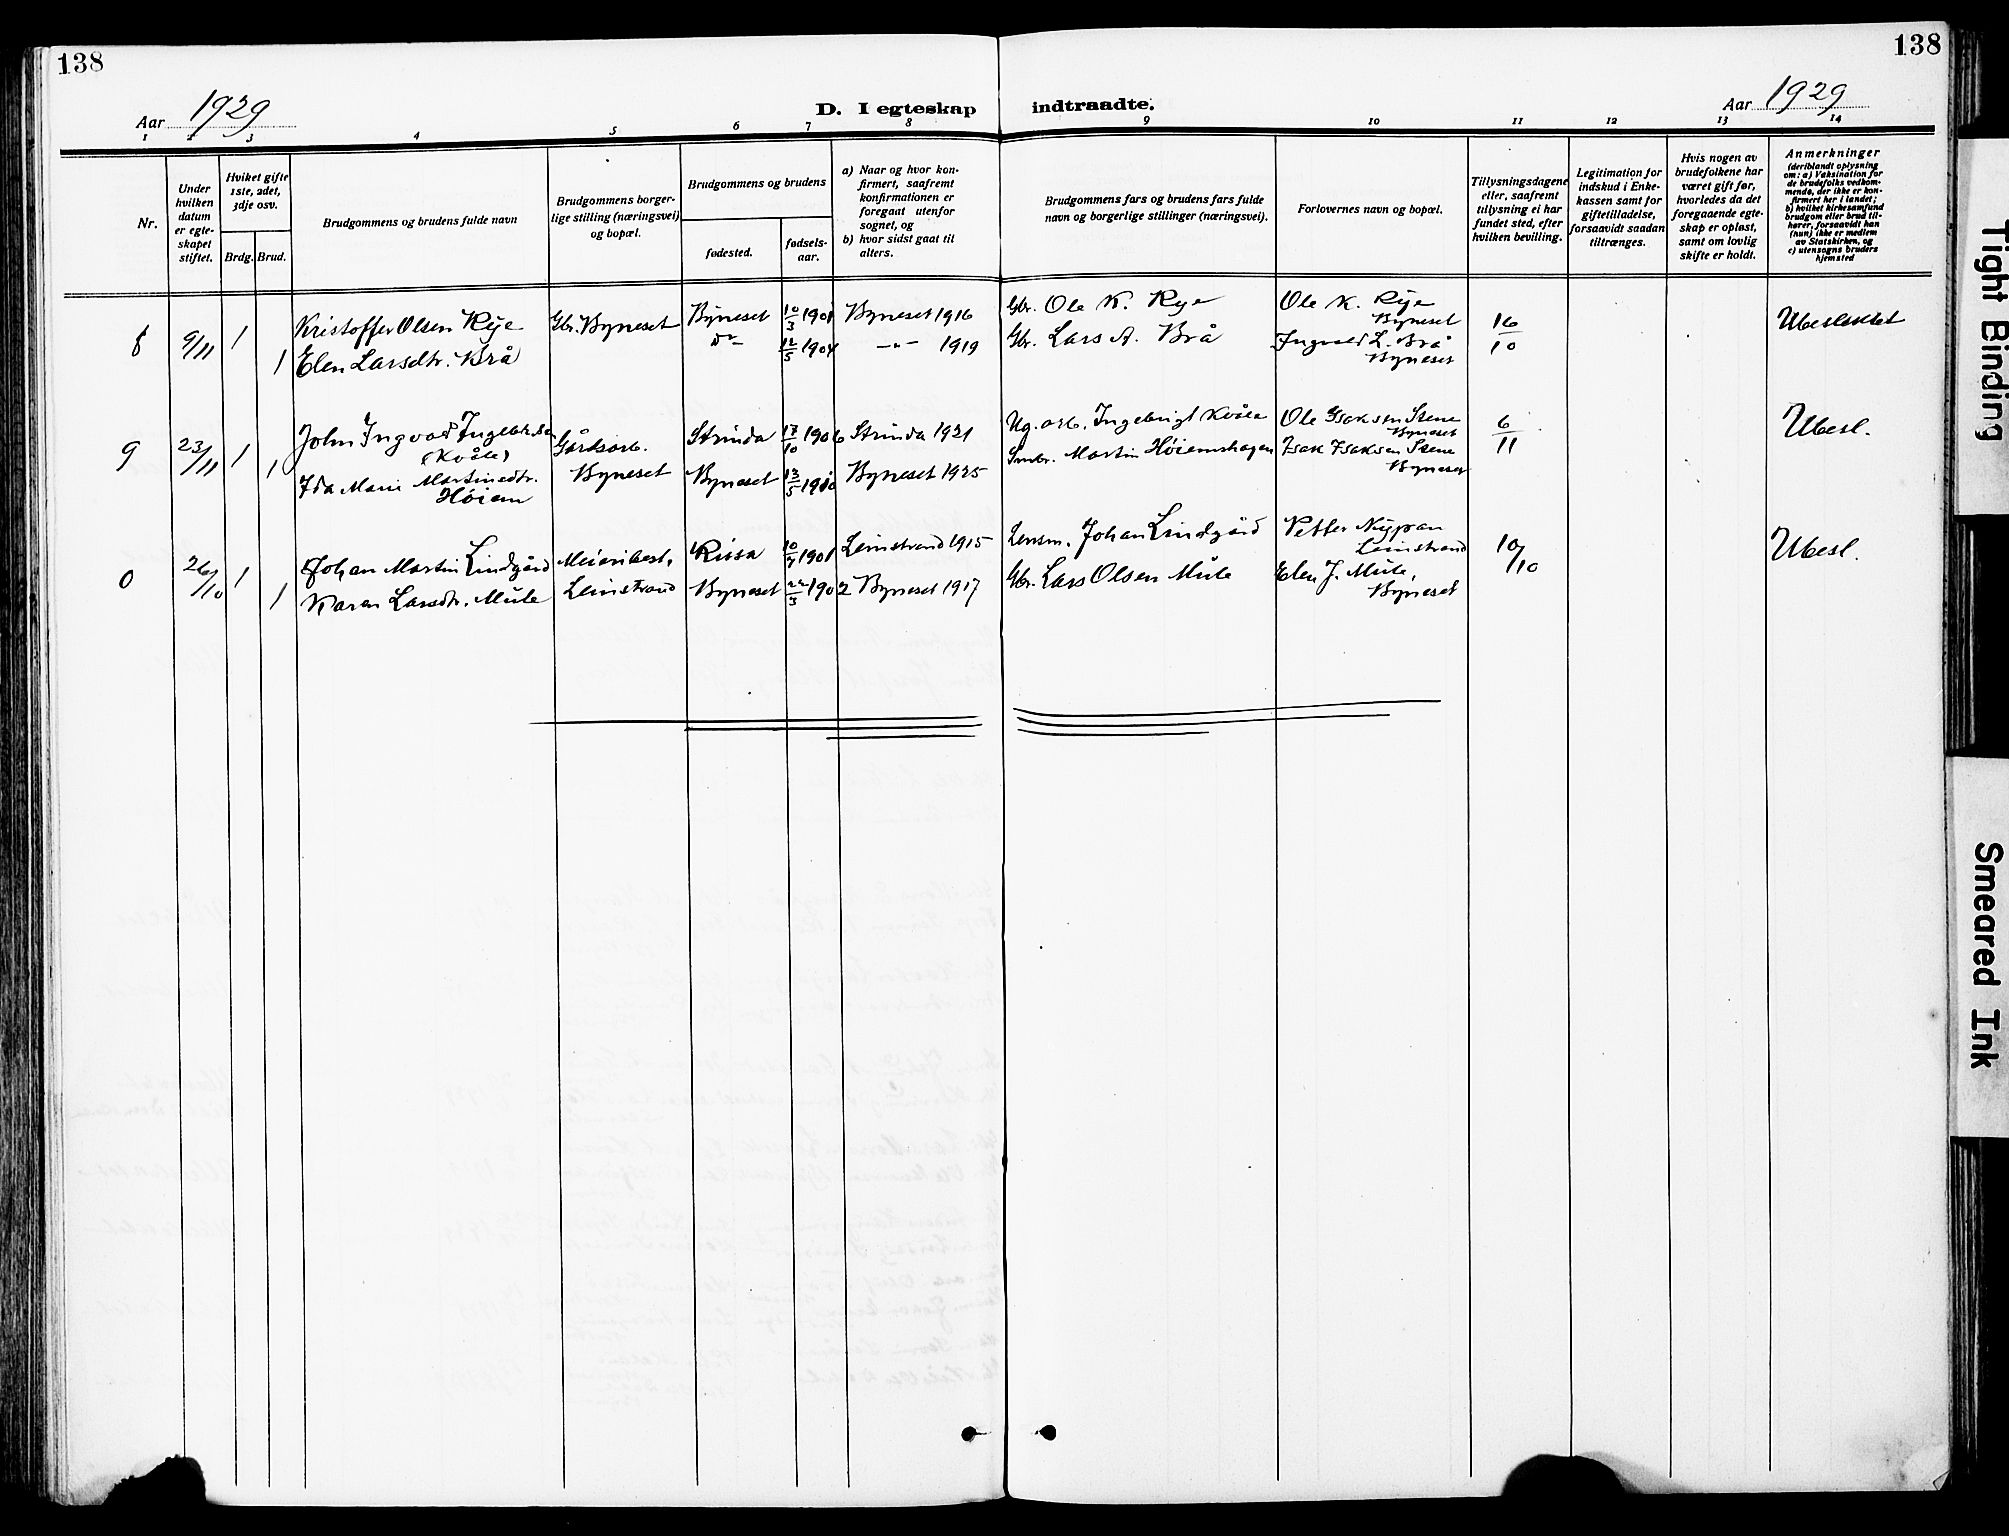 138
138
Aar 1929
D. I egteskap indtraadte.
Aar 1929
1 2 3 4 5 6 7 8 9 10 11 12 13 14
Nr.
Under hvilken datum er egteskapet stiftet.
Hviket gifte 1ste, 2det, 3dje osv.
Brdg. Brud.
Brudgommens og brudens fulde navn
Brudgommens borgerlige stilling (næringsvei) og bopæl.
Brudgommens og brudens
fødested.
fødselsaar.
a) Naar og hvor konfirmert, saafremt konfirmationen er foregaat utenfor sognet, og
b) hvor sidst gaat til alters.
Brudgommens fars og brudens fars fulde navn og borgerlige stillinger (næringsvei).
Forlovernes navn og bopæl.
Tillysningsdagene eller, saafremt tillysning ei har fundet sted, efter hvilken bevilling.
Legitimation for indskud i Enkekassen samt for giftetilladelse, forsaavidt saadan tiltrænges.
Hvis nogen av brudefolkene har været gift før, hvorledes da det foregaaende egteskap er opløst, samt om lovlig skifte er holdt.
Anmerkninger (deriblandt oplysning om: a) Vaksination for de brudefolks vedkommende, der ikke er konfirmert her i landet; b) hvilket kirkesamfund brudgom eller brud tilhører, forsaavidt han (hun) ikke er medlem av Statskirken, og c) utensogns bruders hjemsted
8 9/11 1 Kristoffer Olsen Rye Gbr. Byneset Byneset 10/3 1901 Byneset 1916 Gbr. Ole K. Rye Ole K. Rye Byneset 16/10 Ubeslektet
1 Elen Larsdtr. Brå do 12/5 1904 -"- 1919 Gbr. Lars A. Brå Ingvald L. Brå Byneset
9 23/11 1 John Ingvad Ingebrigtsen (Kvåle) Gårdsarb. Strinda 17/10 1906 Strinda 1921 Ug. arb. Ingebrigt Kvåle Ole Isaksen Stene Byneset 6/11 Ubesl.
1 Ida Marie Martinsdtr. Høiem Byneset Byneset 13/5 1910 Byneset 1925 Smbr. Martin Høiemshagen Isak Isaksen Stene Byneset
0 26/10 1 Johan Martin Lindgård Meieribest. Rissa 10/7 1901 Leinstrand 1915 Lensm. Johan Lindgård Petter Nypan Leinstrand 10/10 Ubesl.
1 Karen Larsdtr. Mule Leinstrand Byneset 22/3 1902 Byneset 1917 Gbr. Lars Olsen Mule Elen J. Mule, Byneset
Tight Binding
Smeared Ink